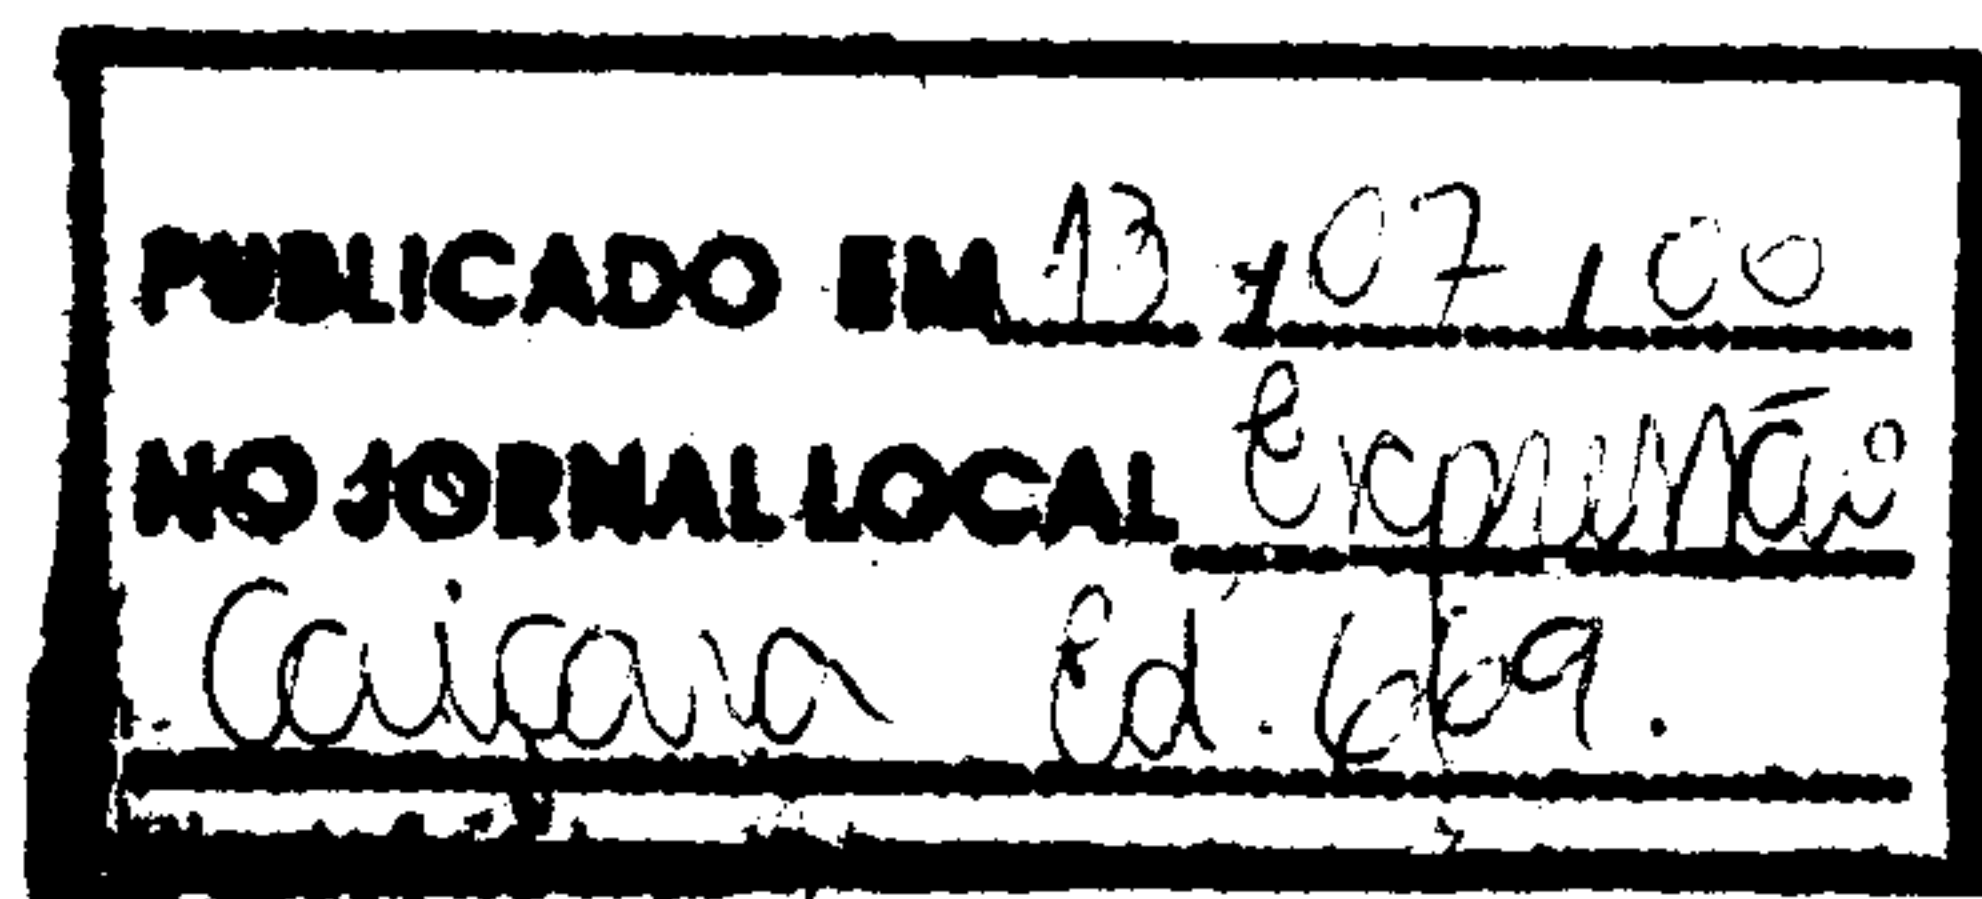 PUBLICADO EM 13/07/00
NO JORNAL LOCAL Expressão
Caiçara Ed. 669.